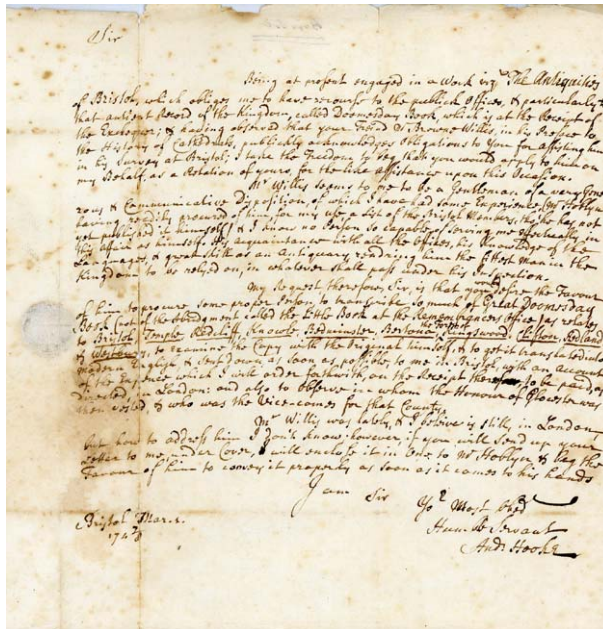 Sir
Being at present engaged in a Work viz.t The Antiquities
of Bristol, which obliges me to have recourse to the publick Offices, & particularly to
that antient Record of the Kingdom, called Doomsday Book, which is at the Receipt of
the Exchequer; & having observed that your Friend Mr Browne Willis, in his Preface to
the History of Cathedrals, publickly acknowledges Obligations to You for assisting him
in his survey at Bristol; I take the Freedom to beg that you would apply to him on
my Behalf as a Relation of yours, for the like Assistance upon this Occasion.
Mr Willis seems to me to be a Gentleman of a very Gene
rous & Communicative Disposition, of which I have had some Experience, Mr Hoblyn
having readily procured of him, for my use, a List of the Bristol Members, tho' he has not
yet published it himself; & I know no Person so capable of serving me effectually in
this affair as himself; his acquaintance with all the Offices, his Knowledge of the
Languages, & great skill as an Antiquary, rendring him the fittest Man in the
Kingdom to be relyed on, in whatever shall pass under his Inspection.
My Request therefore, Sir, is that you would desire the Favour
of him to procure some proper Person to transcribe so much of Great Doomsday
Book (not of the Abridgment called the Little Book at the Remembrancers Office) as relates
to Bristol, Temple, Radcliff, Knowle, Bedminster, Bertona, the Forest Kingswood, Clifton, Redland
& Westbury, to examine the Copy with the Original himself, & to get it translated into
modern English, & sent down, as soon as possible, to me in Bristol, with an account
of the Expence which I will order forthwith, on the Receipt to be paid as
directed in London: and also to observe in whom the Honour of Glocester was
then vested, & who was the Vice-comes for that County.
Mr Willis was lately, & I believe is still, in London,
but how to address him I don't know: however, if you will send up your
Letter to me, under Cover, I will enclose it in one to Mr Hoblyn, & beg the
Favour of him to convey it properly as soon as it comes to his hands
I am Sir
Yo.r Most Obed.t
Humble Servant
And: Hooke
Bristol Mar.
174